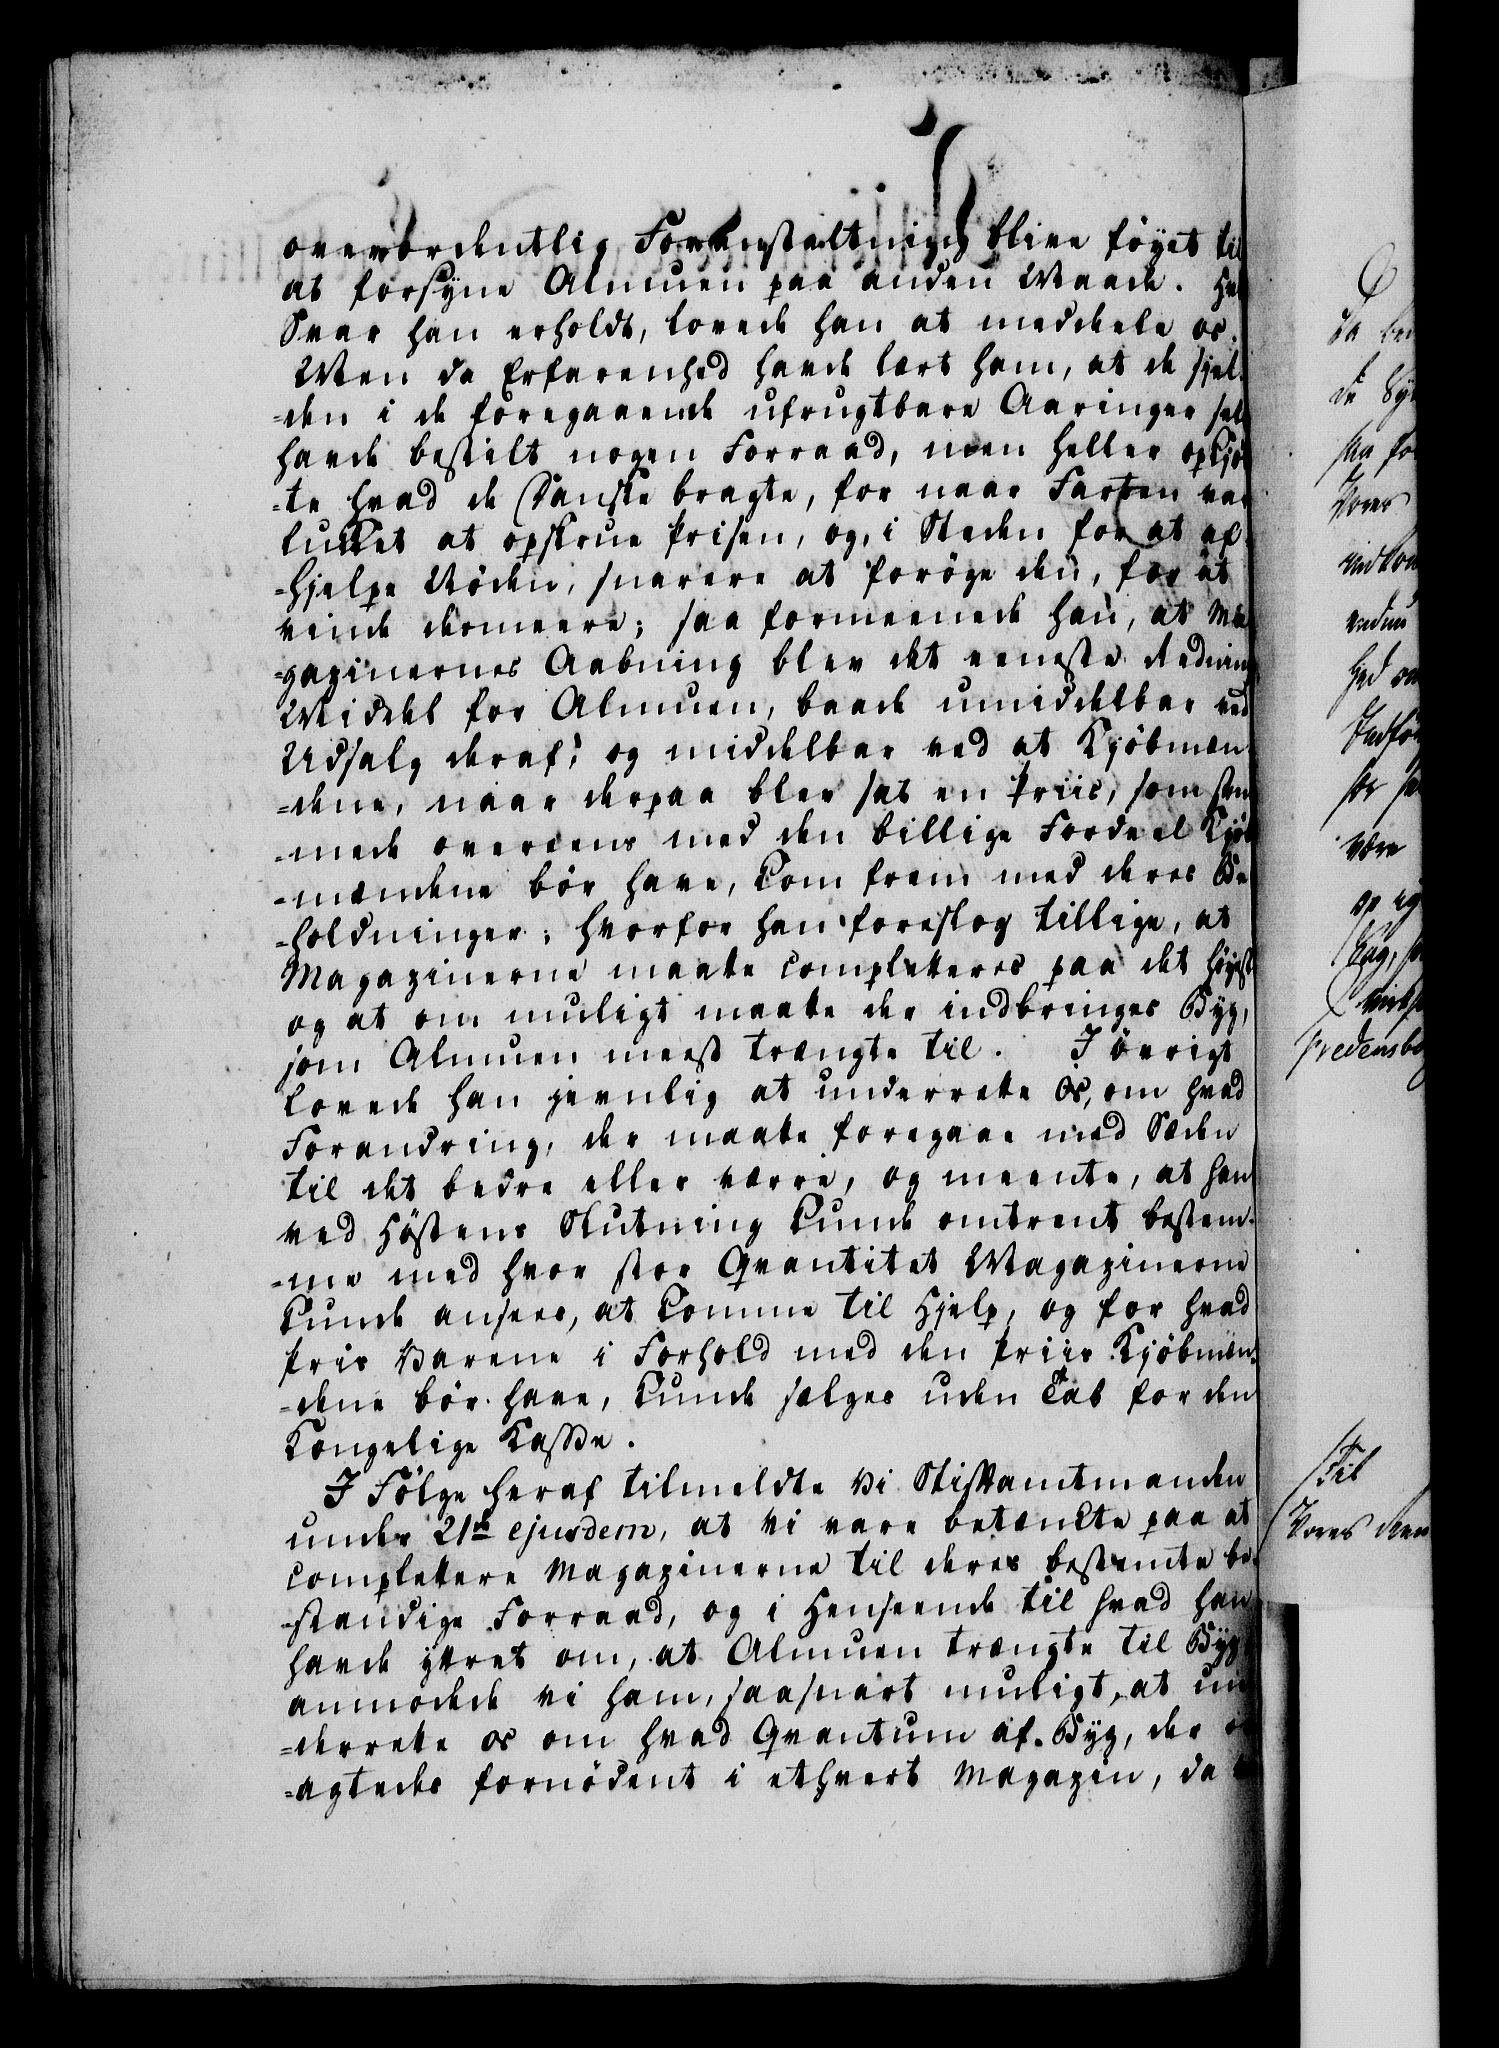 overordentlig Foranstaltning blive föyet til
at forsyne Almuen paa anden Maade.
Svar han erholdt, lovede han at meddele os.
Men da Erfarenhed havde lært ham, at de sjel-
-den i de foregaaende ufrugtbare Aaringer selv
havde bestilt nogen Forraad, men heller opkjöb
-te hvad de Danske bragte, for naar Farten var
lukket at opskrue Prisen, og, i Steden for at af-
-hjelpe Nöden, snarere at foröge den, for at
vinde desmeere; saa formeenede han, at Ma
-gazinernes Aabning blev det eeneste Rednings
Middel for Almuen, baade umiddelbar ved
Udsalg deraf, og middelbar ved at Kjöbmæn-
-dene, naar derpaa blev sat en Priis, som stem
-mede overeens med den billige Fordeel Kjöb
-mændene bör have, kom frem med deres Be
-holdninger; hvorfor han foreslog tillige, at
Magazinerne maatte completteres paa det höyeste
og at om muligt maatte der indbringes Byg,
som Almuen meest trængte til. I övrigt
lovede han jevnlig at underrette os, om hvad
Forandring, der maatte foregaae med Sæden
til det bedre eller værre, og meente, at han
ved Höstens Slutning kunde omtrent bestem-
-me med hvor stor Qvantitet Magazinerne
kunde ansees, at komme til Hjelp, og for hvad
Pris Varene i Forhold med den Priis Kjöbmæn-
-dene bör have, kunde sælges uden Tab for den
Kongelige Kasse.
I Fölge heraf tilmeldte vi Stiftamtmanden
under 21de ejusdem, at vi vare betænkte paa at
complettere Magazinerne til deres bestemte be-
-standige Forraad, og i Henseende til hvad han
havde yttret om, at Almuen trængte til Byg,
anmodede vi ham, saasnart muligt, at un
-derrette os om hvad Qvantum af Byg, der
-agtedes fornödent i ethvert Magazin, da
Fredensb
Til
Vores